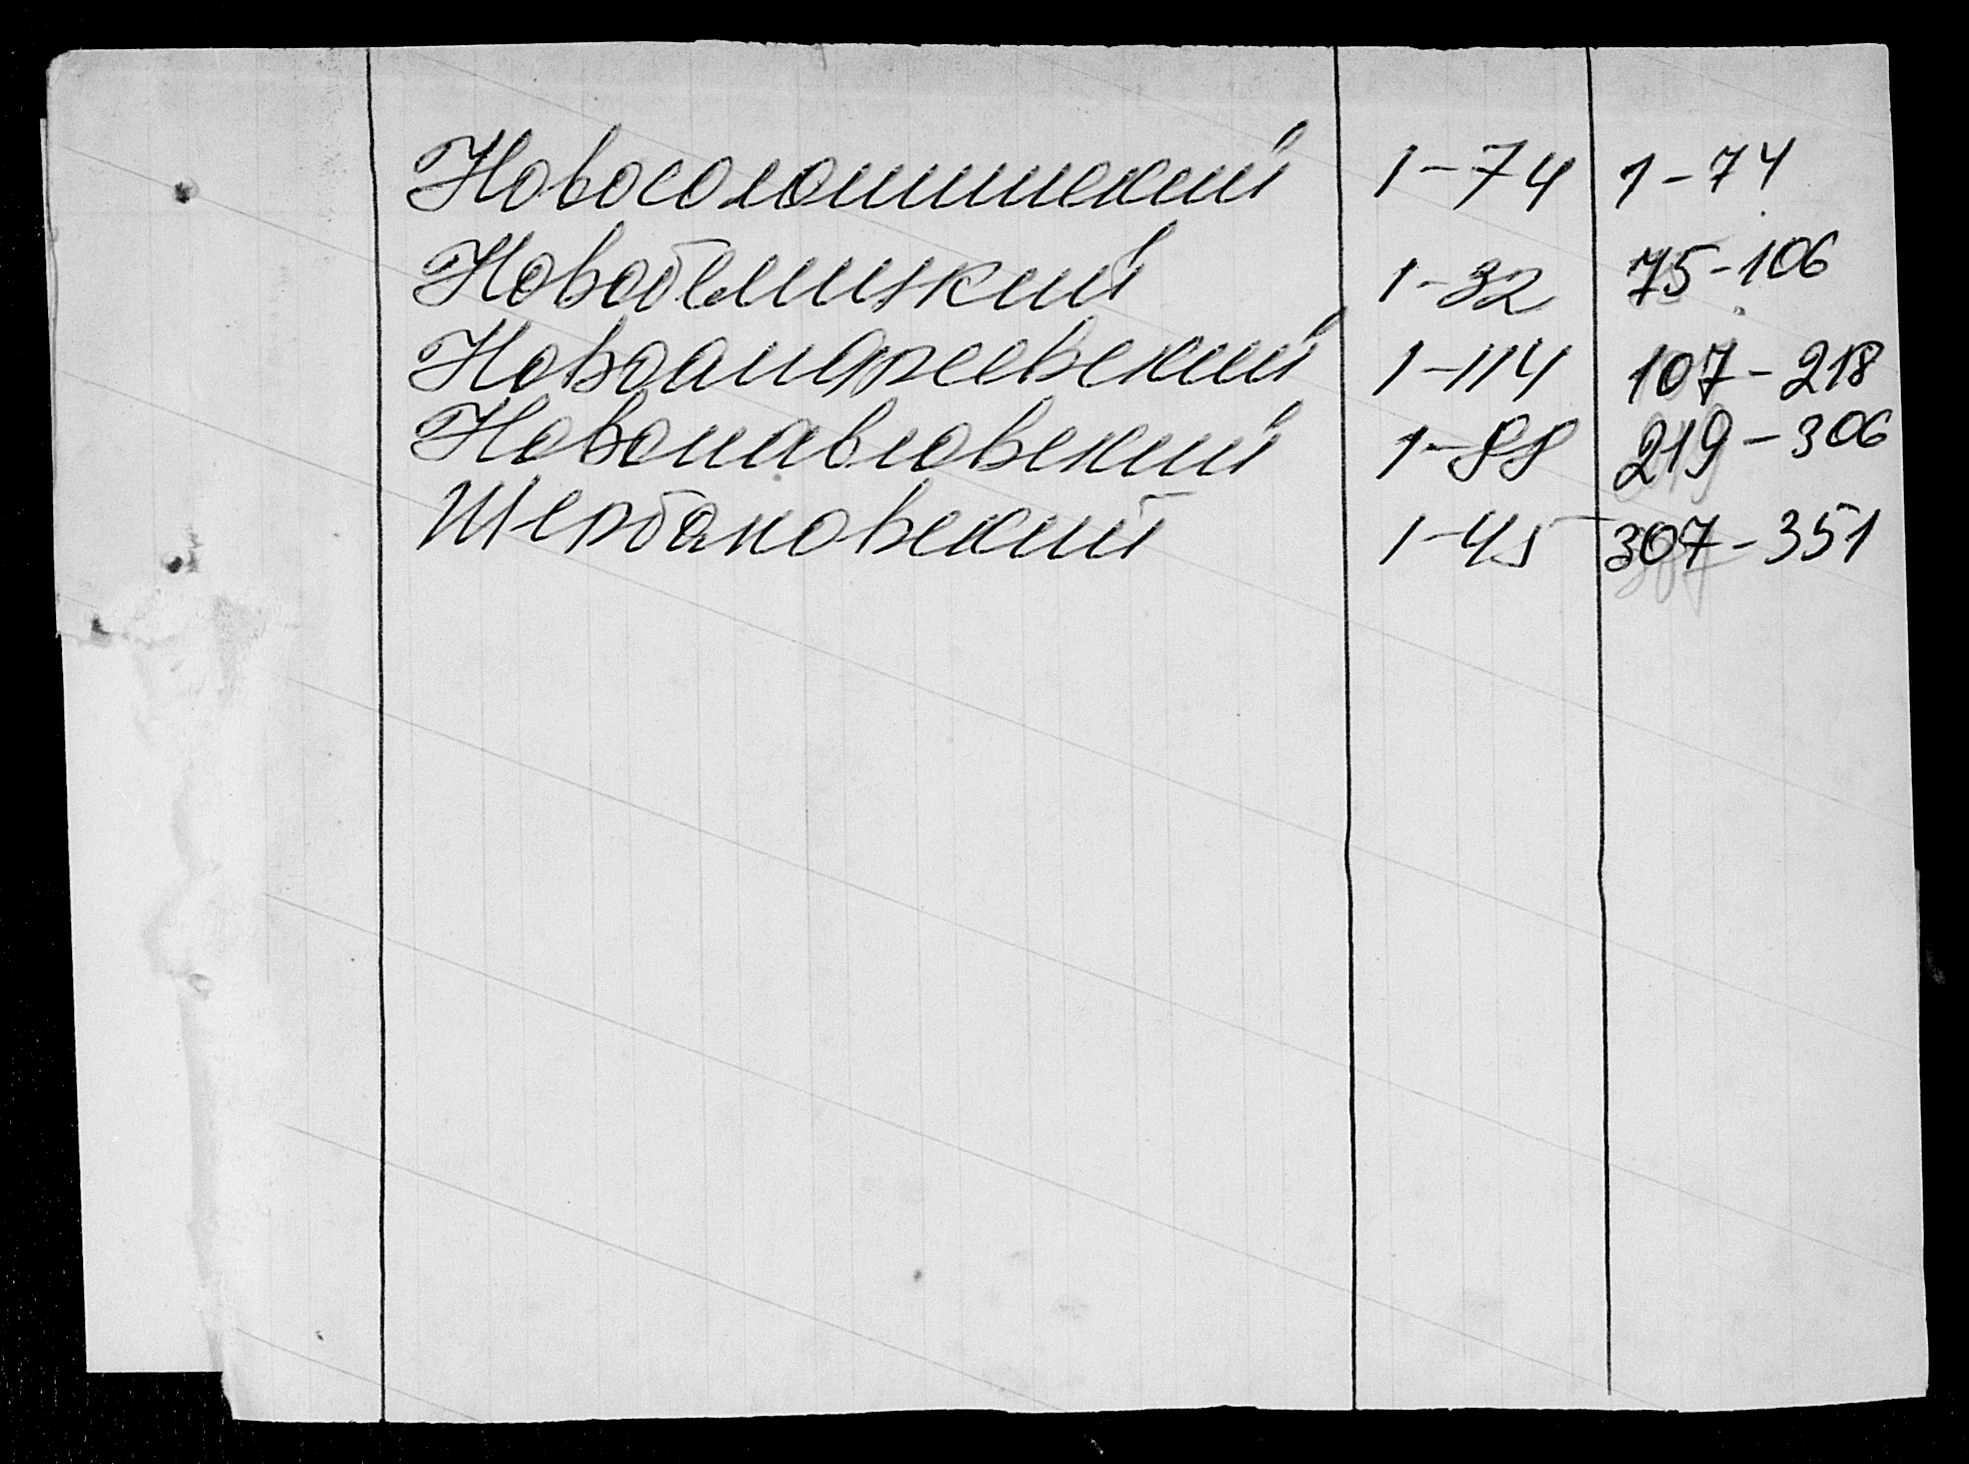 Новосолошинский 1-74 1-74
Новобелицкий 1-32 75-106
Новоандреевский 1-114 107-218
Новопавловский 1-88 219-306
Щербаковский 1-45 307-351